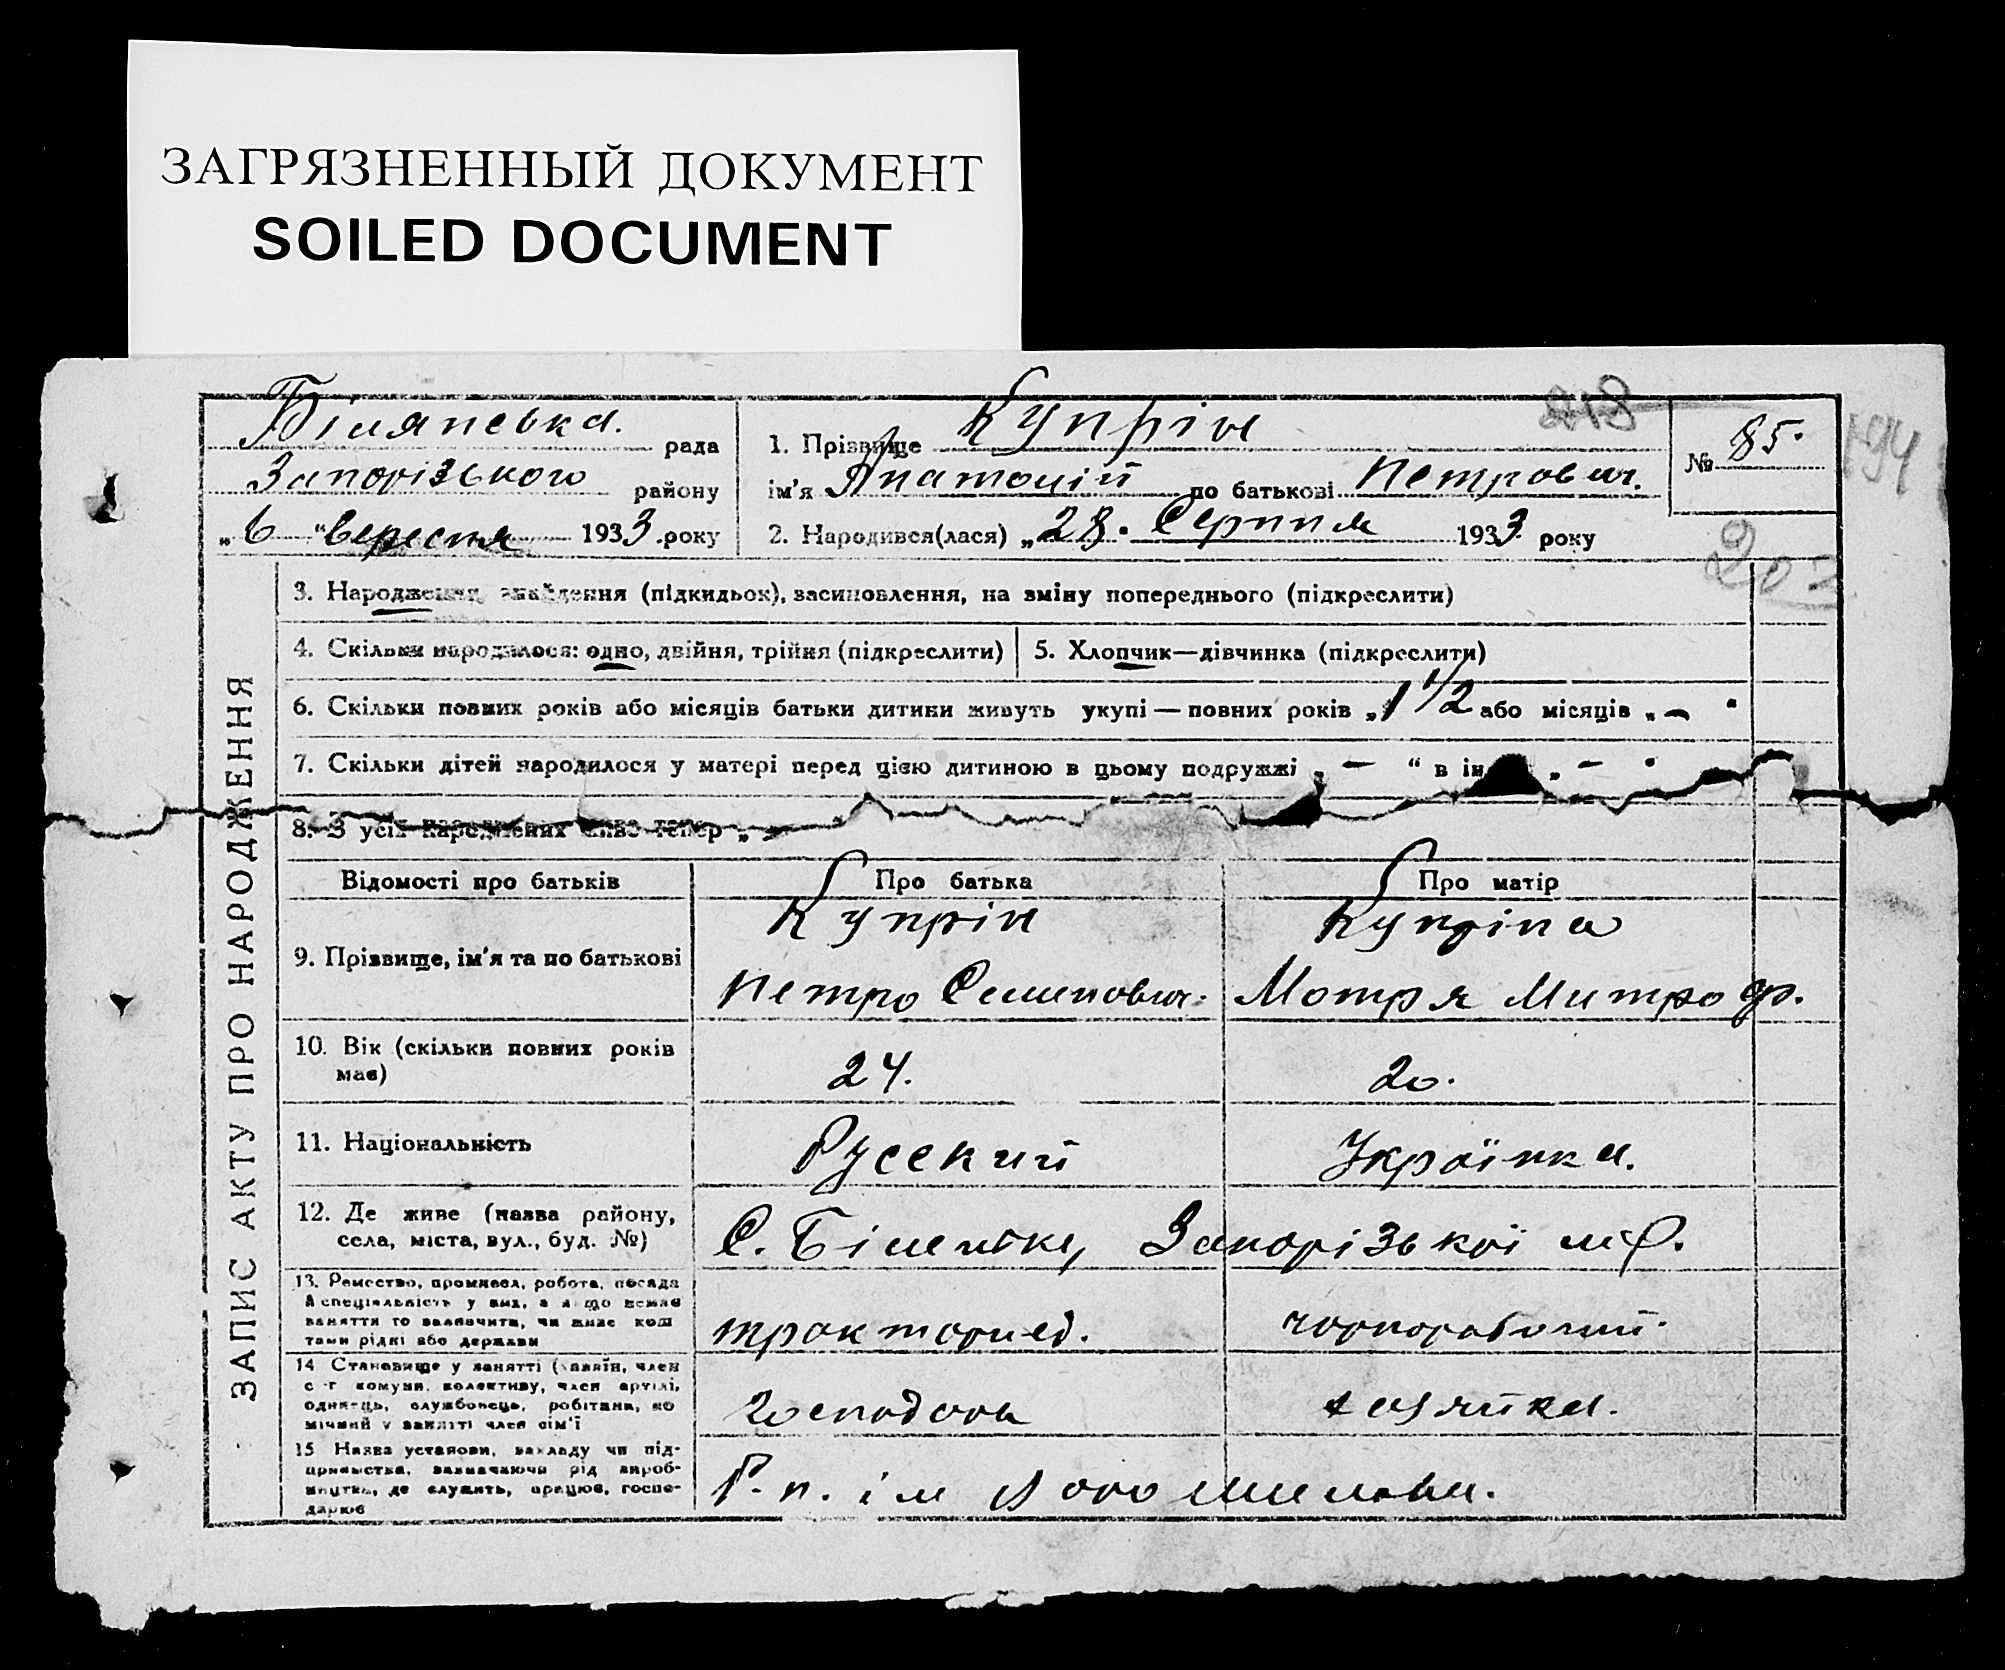 ЗАГРЯЗНЕННЫЙ ДОКУМЕНТ
SOILED DOCUMENT
218
194
203
Біляпська. рада
Запорізького району
„6" вересня 1933 року
1. Прізвище Купрін
ім'я Анатолій по батькові Петрович.
2. Народився(лася) „28. Серпня 1933 року
№ 85.
ЗАПИС АКТУ ПРО НАРОДЖЕННЯ
3. Народження, знайдення (підкидьок), засиновлення, на зміну попереднього (підкреслити)
4. Скільки народилося: одно, двійня, трійня (підкреслити)
5. Хлопчик—дівчинка (підкреслити)
6. Скільки повних років або місяців батьки дитини живуть укупі — повних років „1 1/2 або місяців „—"
7. Скільки дітей народилося у матері перед цією дитиною в цьому подружжі „—" в ін „—"
8. З усіх народжених живе тепер „
Відомості про батьків
Про батька
Про матір
9. Прізвище, ім'я та по батькові
Купрін
Петро Семенович.
Купріна
Мотря Митроф.
10. Вік (скільки повних років
має)
24.
20.
11. Національність
Русский
Українка.
12. Де живе (назва району,
села, міста, вул., буд. №)
С. Біленьке, Запорізької м/р.
13. Ремество, промисел, робота, посада
й спеціяльність у них, а якщо немає
заняття то зазначити, чи живе кош
тами рідні або держави
тракторист.
чорноробочий.
14 Становище у занятті (хазяїн, член
с-г комуни, колективу, член артілі,
одинець, службовець, робітник, по
мічний у занятті член сім'ї
господарь
хазяйка.
15 Назва установи, закладу чи під-
приємства, зазначаючи рід вироб-
ництва, де служить, працює, госпо-
дарює
Р. п. ім Ворошилова.